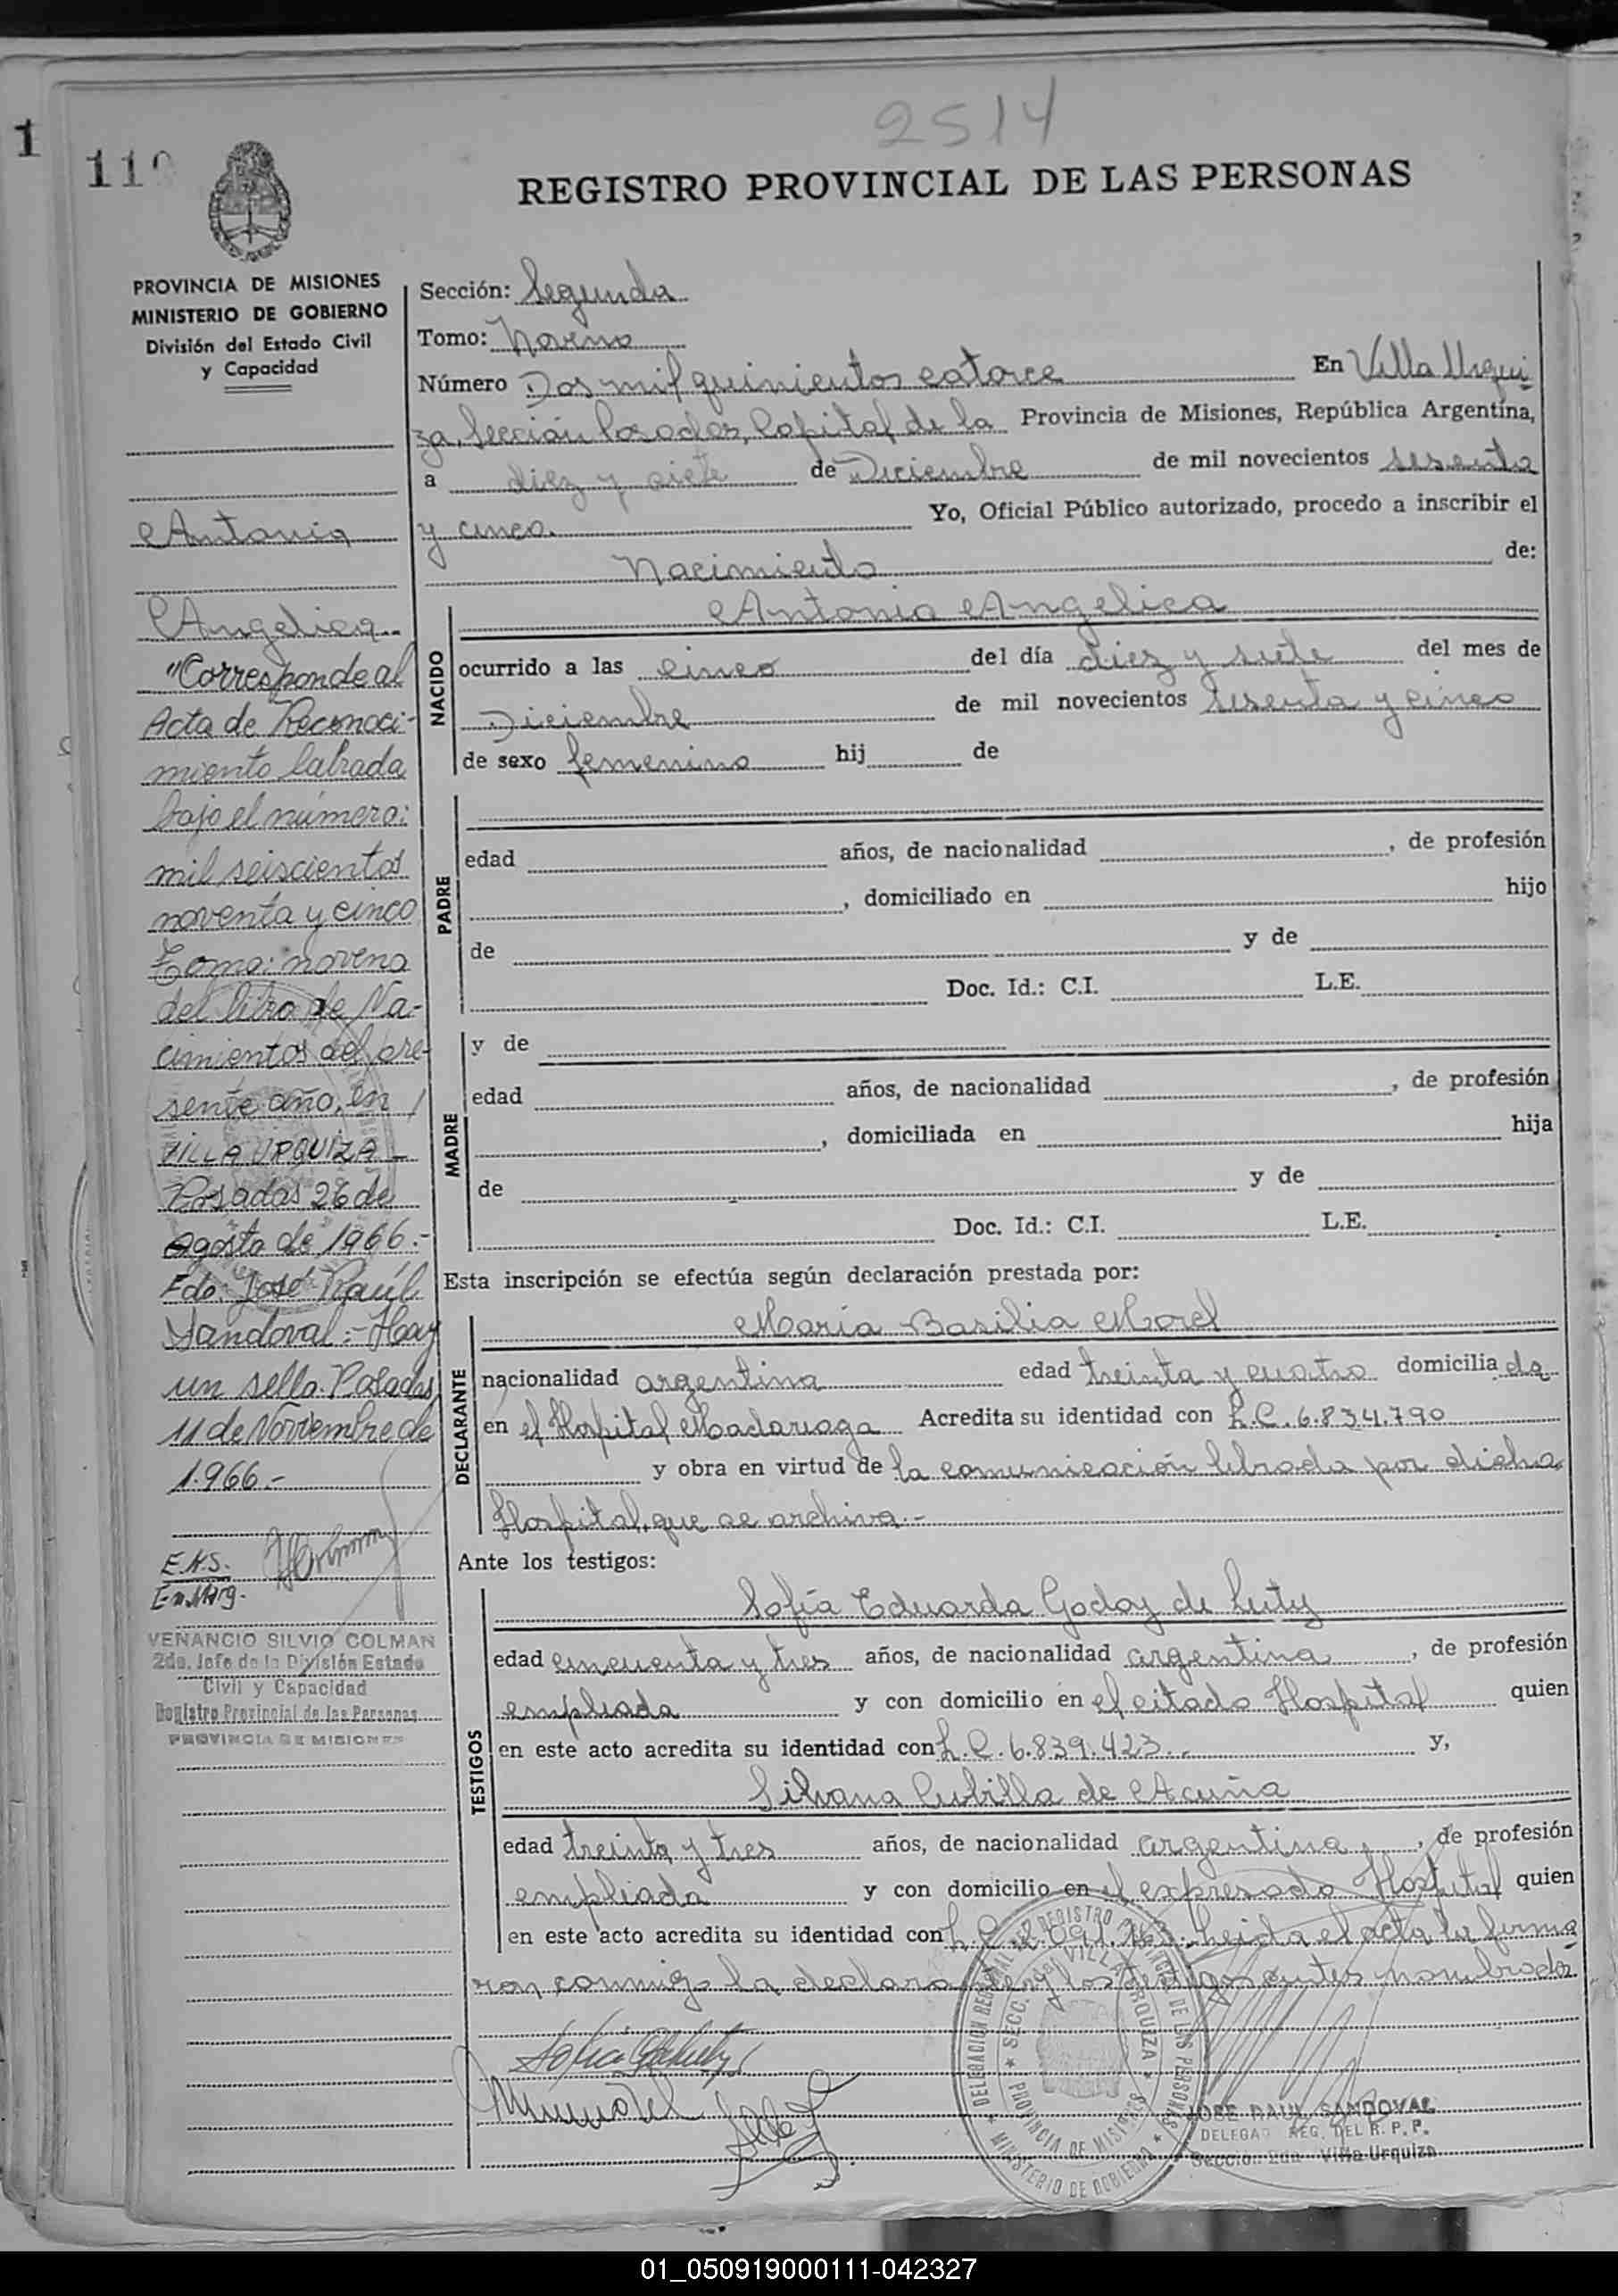 2514
1
110
REGISTRO PROVINCIAL DE LAS PERSONAS
PROVINCIA DE MISIONES
MINISTERIO DE GOBIERNO
División del Estado Civil
y Capacidad
Antonia
Angelica.-
"Corresponde al
Acta de Reconoci-
miento labrada
bajo el número:
mil seiscientos
noventa y cinco
Tomo: noveno
del libro de Na-
cimientos del pre-
sente año, en
VILLA URQUIZA -
Posadas 26 de
agosto de 1966.-
Fdo. José Raúl
Sandoval:- Hay
un sello. Posadas
11 de Noviembre de
1.966.-
VENANCIO SILVIO COLMAN
2do. Jefe de la División Estado
Civil y Capacidad
Registro Provincial de las Personas
PROVINCIA DE MISIONES
Sección: Segunda
Tomo: Noveno
Número Dos mil quinientos catorce En Villa Urqui
za, Sección Posadas, Capital de la Provincia de Misiones, República Argentina,
a diez y siete de Diciembre de mil novecientos sesenta
y cinco. Yo, Oficial Público autorizado, procedo a inscribir el
Nacimiento de:
NACIDO
Antonia Angelica
ocurrido a las cinco del día diez y siete del mes de
Diciembre de mil novecientos sesenta y cinco
de sexo femenino hij de
PADRE
edad años, de nacionalidad , de profesión
, domiciliado en hijo
de y de
Doc. Id.: C.I. L.E.
MADRE
y de
edad años, de nacionalidad , de profesión
, domiciliada en hija
de y de
Doc. Id.: C.I. L.E.
Esta inscripción se efectúa según declaración prestada por:
DECLARANTE
María Basilia Morel
nacionalidad argentina edad treinta y cuatro domicilia da
en el Hospital Madariaga Acredita su identidad con L.C. 6.834.790
y obra en virtud de la comunicación librada por dicho
Hospital, que se archiva.-
Ante los testigos:
TESTIGOS
Sofía Eduarda Godoy de
edad cincuenta y tres años, de nacionalidad argentina , de profesión
empleada y con domicilio en el citado Hospital quien
en este acto acredita su identidad con L.C. 6.839.423.- y,
Silvana Cubilla de Acuña
edad treinta y tres años, de nacionalidad argentina , de profesión
empleada y con domicilio en el expresado Hospital quien
en este acto acredita su identidad con L.C. Leida el acta la firma
ron conmigo la declarante y los testigos antes nombrados.
JOSE RAUL SANDOVAL
DELEGADO REG. DEL R. P. P.
Sección 2da. Villa Urquiza
01_050919000111-042327